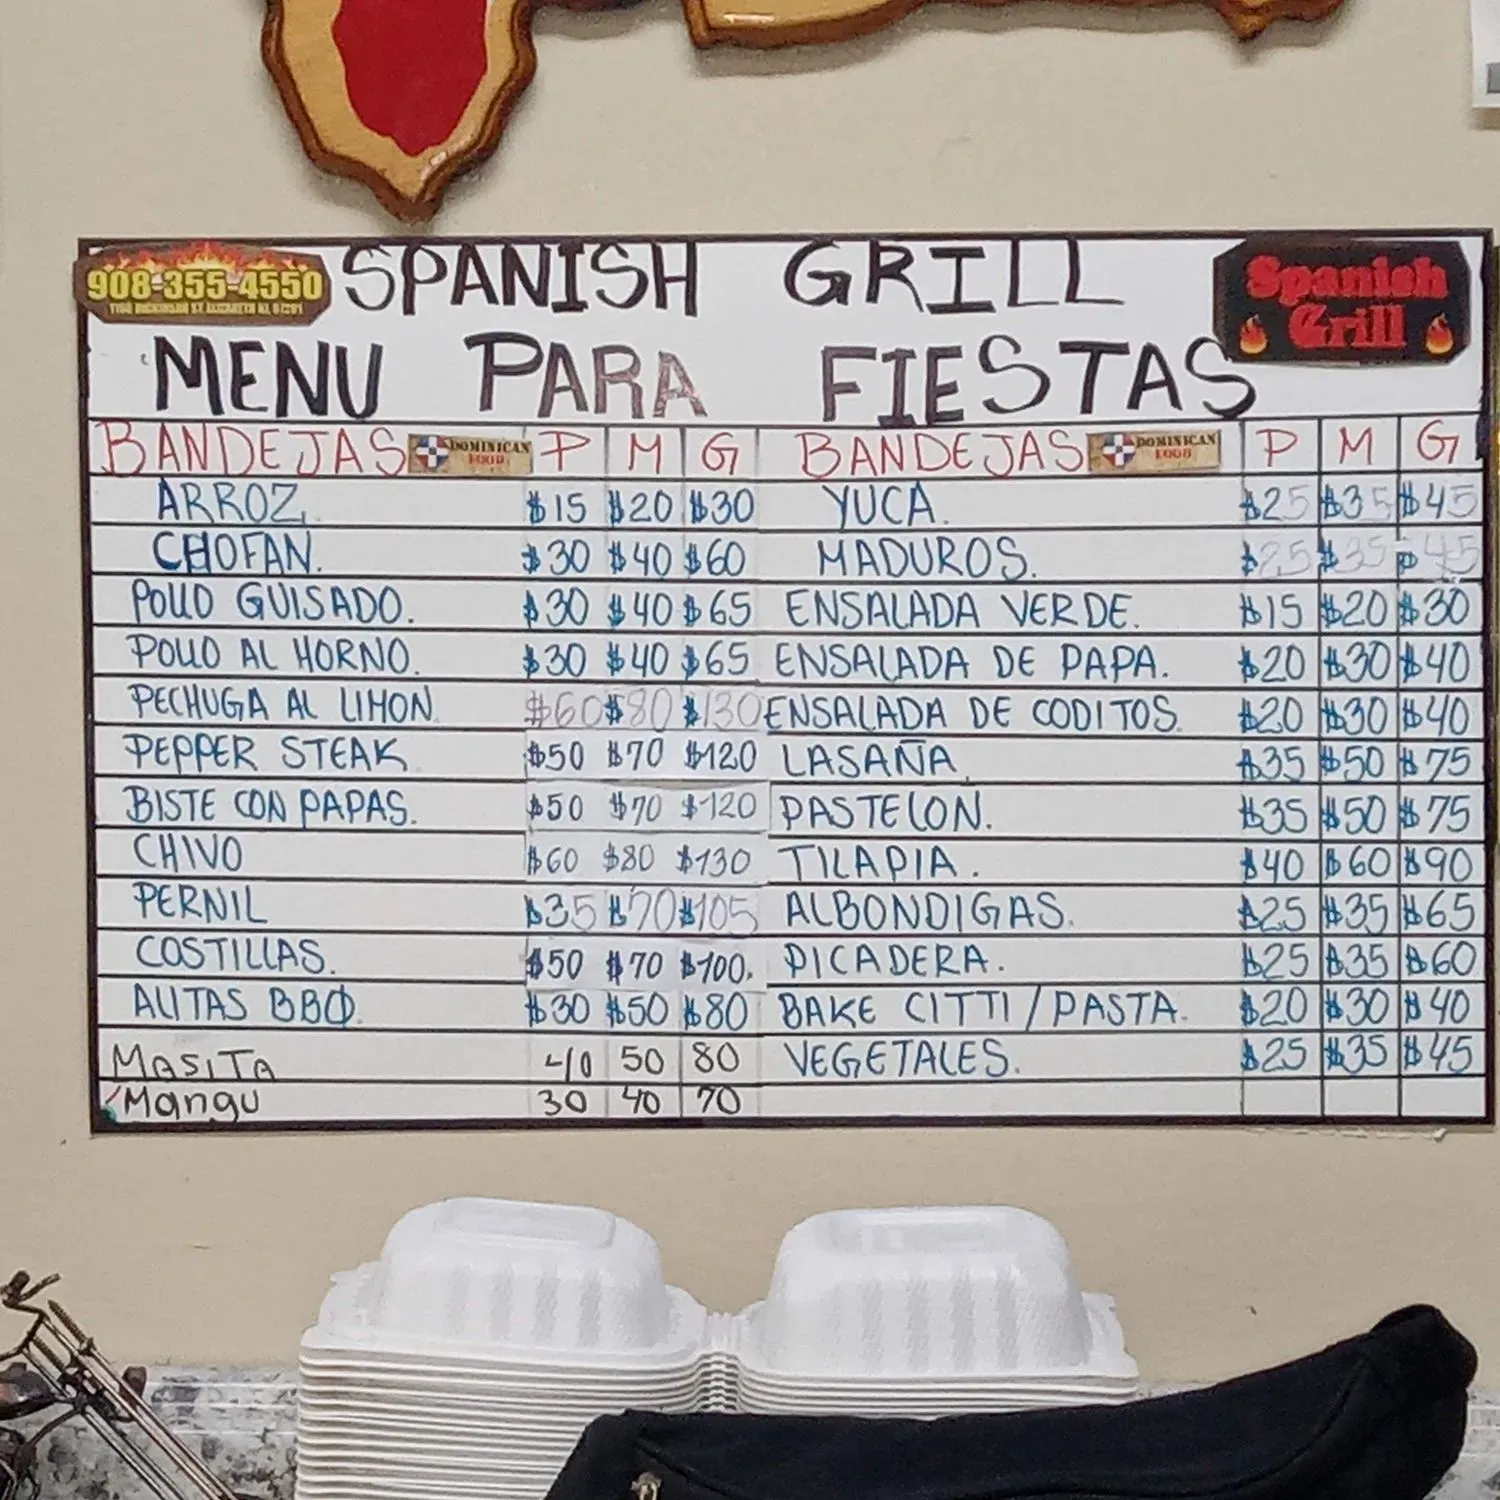 908-355-4550
SPANISH GRILL
Spanish Grill
MENU PARA FIESTAS
BANDEJAS DOMINICAN FOOD P M G BANDEJAS DOMINICAN FOOD P M G
ARROZ. $15 $20 $30 YUCA. $25 $35 $45
CHOFAN. $30 $40 $60 MADUROS. $25 $35 $45
POLLO GUISADO. $30 $40 $65 ENSALADA VERDE. $15 $20 $30
POLLO AL HORNO. $30 $40 $65 ENSALADA DE PAPA. $20 $30 $40
PECHUGA AL LIMON. $60 $80 $130 ENSALADA DE CODITOS. $20 $30 $40
PEPPER STEAK. $50 $70 $120 LASAÑA. $35 $50 $75
BISTE CON PAPAS. $50 $70 $120 PASTELON. $35 $50 $75
CHIVO $60 $80 $130 TILAPIA. $40 $60 $90
PERNIL $35 $70 $105 ALBONDIGAS. $25 $35 $65
COSTILLAS. $50 $70 $100. PICADERA. $25 $35 $60
ALITAS BBQ. $30 $50 $80 BAKE CITTI/PASTA. $20 $30 $40
MASITA 40 50 80 VEGETALES. $25 $35 $45
Mangu 30 40 70